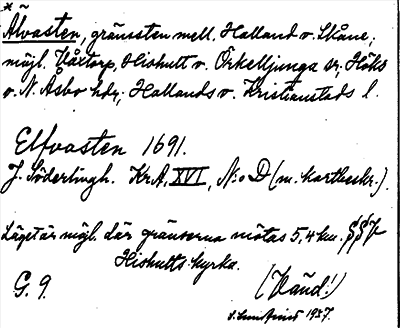 *
Älvasten, gränssten mell. Halland o. Skåne;
möjl. Våxtorp, Hishult o. Örkelljunga sr; Höks
o. N. Åsbo hdr; Hallands o. Kristianstads l.
Elfvasten 1691.
J. Söderlingh. Kr.A. XVI, N:o D (m. kartbeskr.).
Läget är möjl. där gränserna mötas 5,4 km.
Hishults kyrka.
G. 9. (Vänd!)
1957.